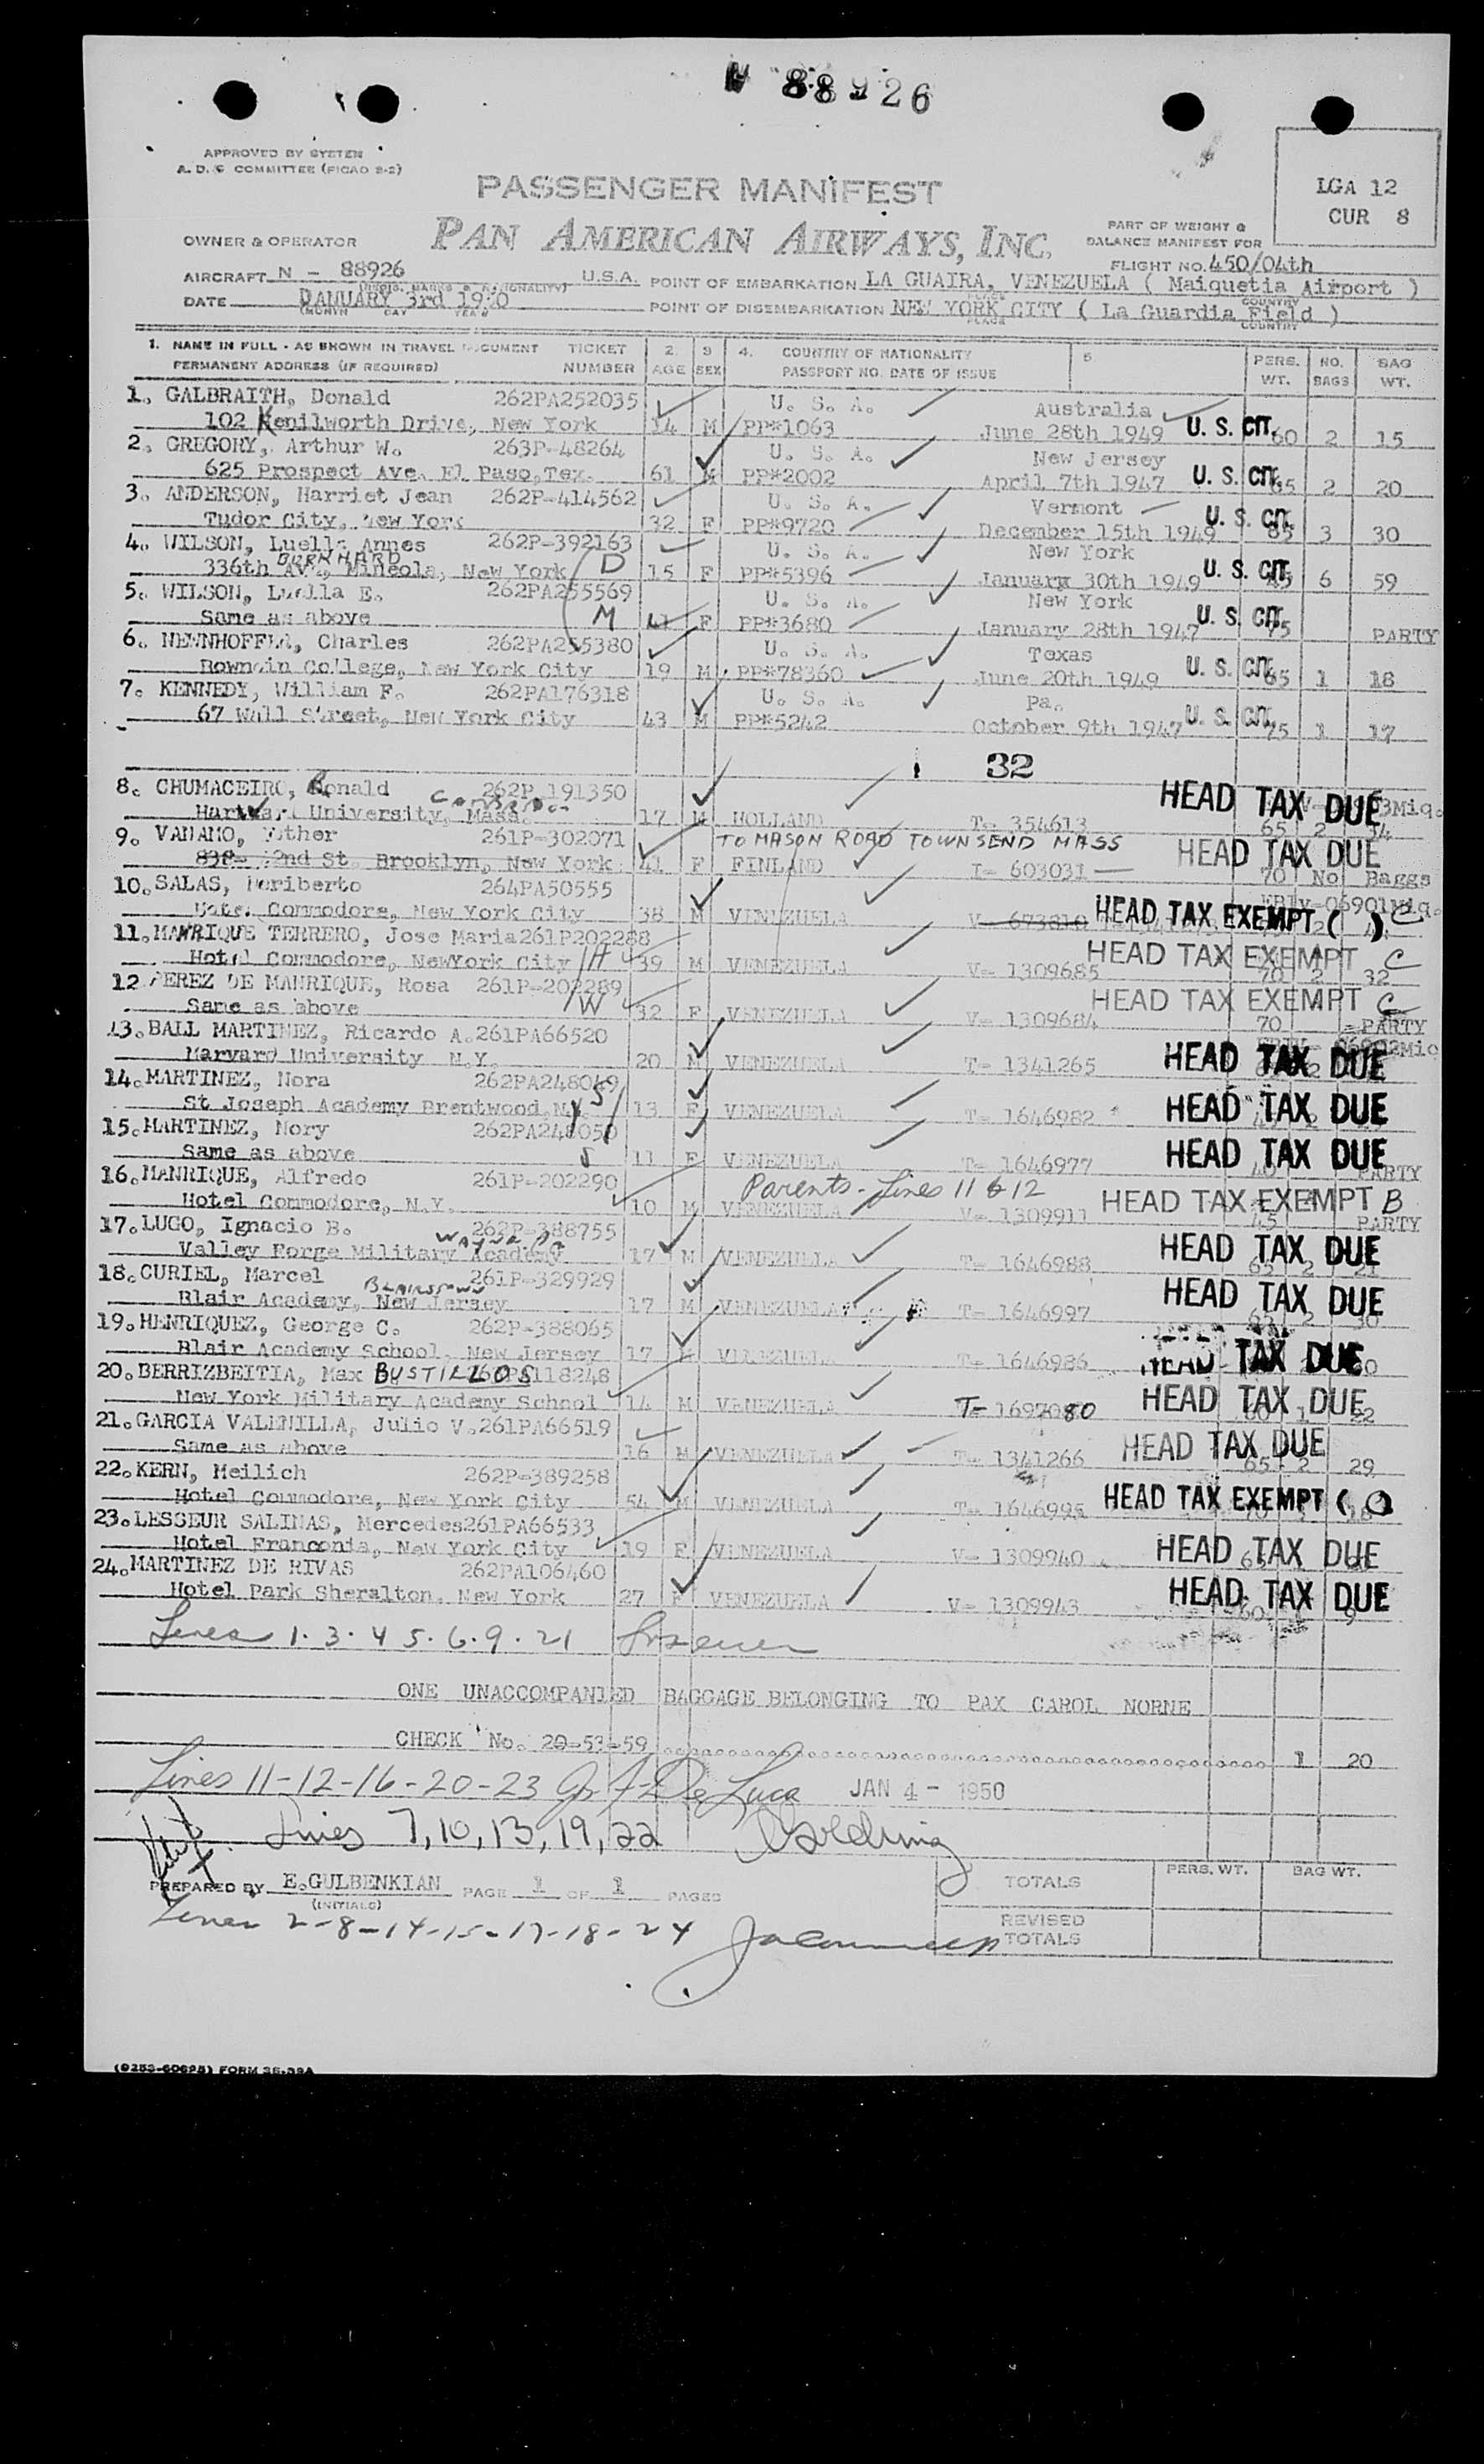 N 88926
APPROVED BY SYSTEM
A. D. & COMMITTEE (PICAO 2-2)
PASSENGER MANIFEST
LGA 12
CUR 8
OWNER & OPERATOR
PAN AMERICAN AIRWAYS, INC.
PART OF WEIGHT &
BALANCE MANIFEST FOR
FLIGHT NO. 450/04th
AIRCRAFT N - 88926 U.S.A. POINT OF EMBARKATION LA GUAIRA, VENEZUELA ( Maiquetia Airport )
(REGIS. MARKS & NATIONALITY) PLACE COUNTRY
DATE DANUARY 3rd 1950 POINT OF DISEMBARKATION NEW YORK CITY ( La Guardia Field )
(MONTH DAY YEAR PLACE COUNTRY
1. NAME IN FULL - AS SHOWN IN TRAVEL DOCUMENT TICKET 2. 3 4. COUNTRY OF NATIONALITY 5 PERS. NO. BAG
PERMANENT ADDRESS (IF REQUIRED) NUMBER AGE SEX PASSPORT NO. DATE OF ISSUE WT. BAGS WT.
1. GALBRAITH, Donald 262PA252035 U. S. A. Australia
102 Kenilworth Drive, New York 14 M PP*1063 June 28th 1949 U. S. CIT. 60 2 15
2. GREGORY, Arthur W. 263P-48264 U. S. A. New Jersey
625 Prospect Ave. El Paso, Tex. 61 M PP*2002 April 7th 1947 U. S. CIT. 65 2 20
3. ANDERSON, Harriet Jean 262P-414562 U. S. A. Vermont
Tudor City, New York 32 F PP*9720 December 15th 1949 U. S. CIT. 85 3 30
4. WILSON, Luella Annes 262P-392163 U. S. A. New York
BURNHARD
336th Av., Mineola, New York D 15 F PP*5396 January 30th 1949 U. S. CIT. 6 59
5. WILSON, Luella E. 262PA255569 U. S. A. New York
Same as above M 41 F PP*3680 January 28th 1947 U. S. CIT. 75 PARTY
6. Charles 262PA255380 U. S. A. Texas
College, New York City 19 M PP*78360 June 20th 1949 U. S. CIT. 65 1 18
7. KENNEDY, William F. 262PA176318 U. S. A. Pa.
67 Wall Street, New York City 43 M PP*5242 October 9th 1947 U. S. CIT. 75 1 17
32
8. CHUMACEIRO, Ronald 262P 191350 HEAD TAX DUE
Harvard University, Mass. 17 M HOLLAND T- 354613 65 2 14
9. VANAMO, 261P-302071 TO MASON ROAD TOWNSEND MASS HEAD TAX DUE
2nd St. Brooklyn, New York 41 F FINLAND I- 603031 70 No Baggs
10. SALAS, Heriberto 264PA50555
Hotel Commodore, New York City 38 M VENEZUELA V- 673810 HEAD TAX EXEMPT ( ) C
11. MANRIQUE TERRERO, Jose Maria 261P202288
Hotel Commodore, NewYork City H 39 M VENEZUELA V- 1309685 HEAD TAX EXEMPT C 70 2 32
12 PEREZ DE MANRIQUE, Rosa 261P-202289
Same as above W 32 F VENEZUELA V- 1309684 HEAD TAX EXEMPT C 70 - PARTY
13. BALL MARTINEZ, Ricardo A. 261PA66520
Harvard University N.Y. 20 M VENEZUELA T- 1341265 HEAD TAX DUE
14. MARTINEZ, Nora 262PA248049
St Joseph Academy Brentwood, N.Y. S 13 F VENEZUELA T- 1646982 HEAD TAX DUE
15. MARTINEZ, Nory 262PA248050
Same as above S 11 F VENEZUELA T- 1646977 HEAD TAX DUE 40 PARTY
16. MANRIQUE, Alfredo 261P-202290 Parents - Lines 11 & 12
Hotel Commodore, N.Y. 10 M VENEZUELA V- 1309911 HEAD TAX EXEMPT B 45 PARTY
17. LUGO, Ignacio B. 262P-388755
WAYNE PA
Valley Forge Military Academy 17 M VENEZUELA T- 1646988 HEAD TAX DUE 65 2 21
18. CURIEL, Marcel 261P-329929
BLAIRSTOWN
Blair Academy, New Jersey 17 M VENEZUELA T- 1646997 HEAD TAX DUE 65 2 30
19. HENRIQUEZ, George C. 262P-388065
Blair Academy School, New Jersey 17 M VENEZUELA T- 1646986 HEAD TAX DUE
20. BERRIZBEITIA, Max BUSTILLOS 118248
New York Military Academy School 14 M VENEZUELA T- 1697080 HEAD TAX DUE 60 1 22
21. GARCIA VALENILLA, Julio V. 261PA66519
Same as above 16 M VENEZUELA T- 1341266 HEAD TAX DUE 65 2 29
22. KERN, Meilich 262P-389258
Hotel Commodore, New York City 54 M VENEZUELA T- 1646995 HEAD TAX EXEMPT (
23. LESSEUR SALINAS, Mercedes 261PA66533
Hotel Franconia, New York City 19 F VENEZUELA V- 1309940 HEAD TAX DUE
24. MARTINEZ DE RIVAS 262PA106460
Hotel Park Sheralton, New York 27 F VENEZUELA V- 1309943 HEAD TAX DUE 60 9
Lines 1. 3. 4 5. 6. 9. 21
ONE UNACCOMPANIED BAGGAGE BELONGING TO PAX CAROL NORNE
CHECK No. 20-53-59 1 20
Lines 11-12-16-20-23 De Luca JAN 4 - 1950
Lines 7, 10, 13, 19, 22 Golding
PREPARED BY E. GULBENKIAN PAGE 1 OF 1 PAGES
(INITIALS)
TOTALS PERS. WT. BAG WT.
Lines 2-8-14-15-17-18-24
REVISED
TOTALS
(9253-60625) FORM 36-39A